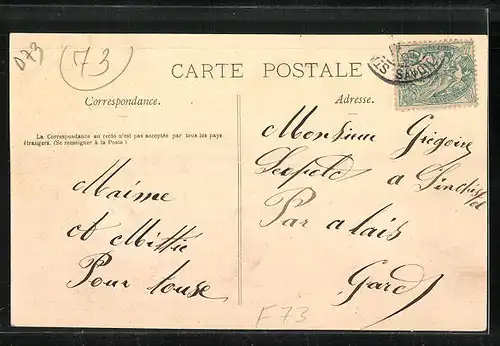 D73
73
CARTE POSTALE
Correspondance.
Adresse.
La Correspondance au recto n'est pas acceptée par tous les pays
étrangers. (Se renseigner à la Poste)
SAVOIE
Monsieur Grégoire
a
Par alais
Gard
Maime
et Mittie
Pour touse
F73